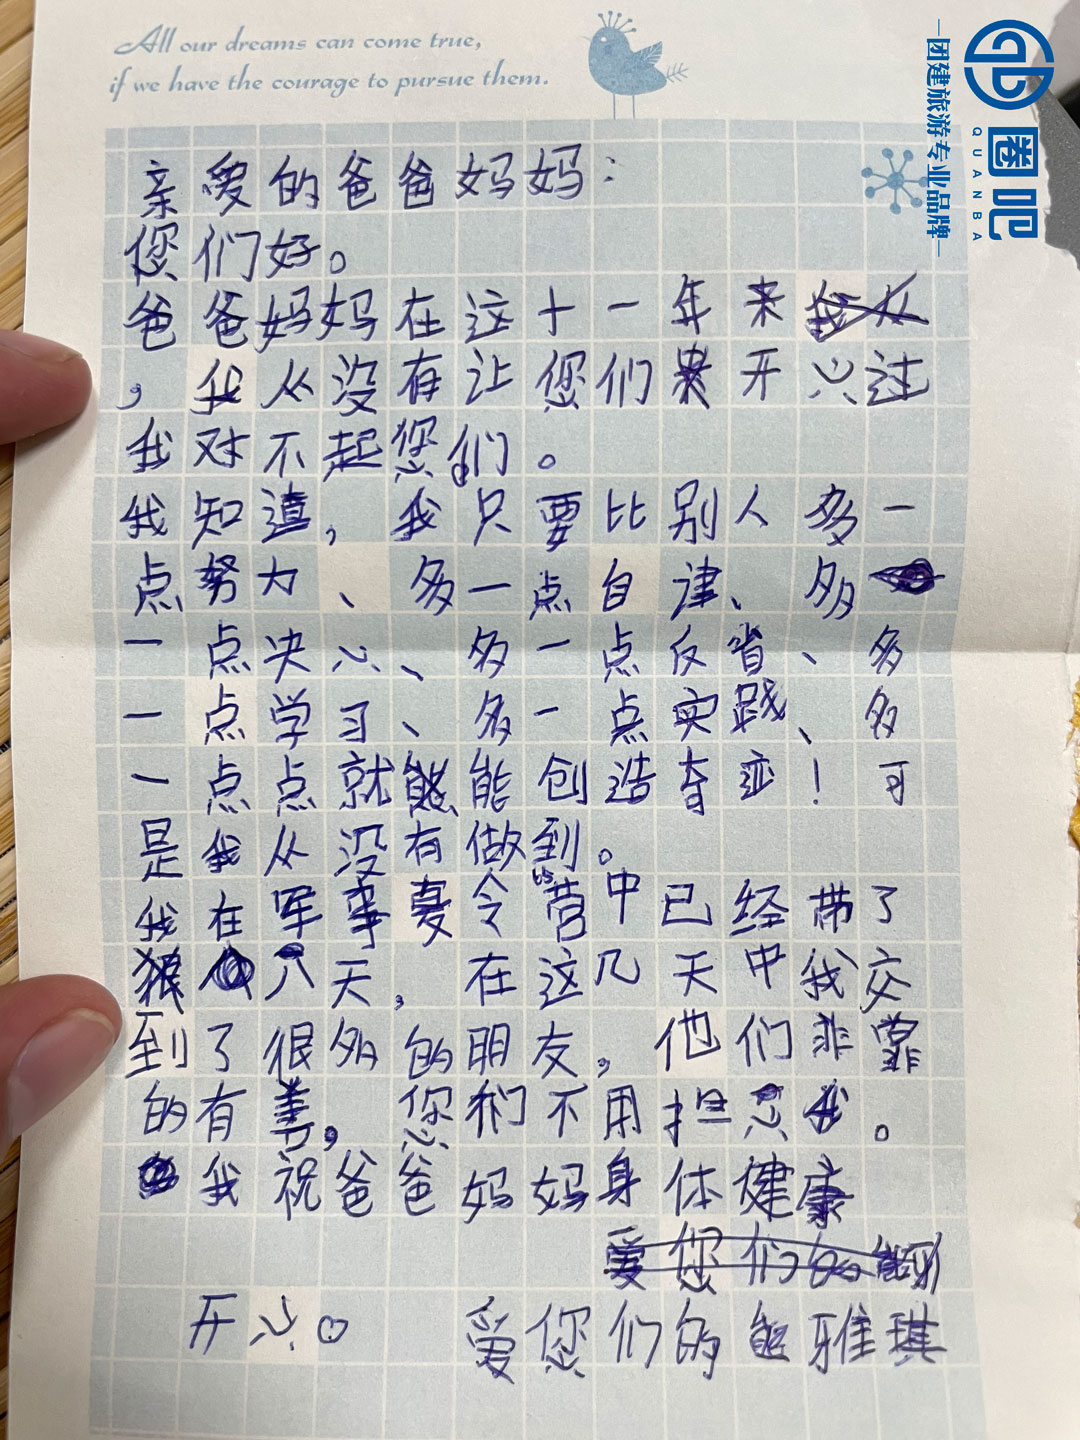 All our dreams can come true,
if we have the courage to pursue them.
圈吧
QUANBA
团建旅游专业品牌
亲爱的爸爸妈妈：
您们好。
爸爸妈妈在这十一年来我从
，我从没有让您们开心过
我对不起您们。
我知道，我只要比别人多一
点努力、多一点自律、多
一点决心、多一点反省、多
一点学习、多一点实践、多
一点点就能能创造奇迹！可
是我从没有做到。
我在军事夏令营中已经带了
八天，在这几天中我交
到了很多的朋友，他们非常
的有善，您们不用担心我。
我祝爸爸妈妈身体健康
爱您们
开心。 爱您们的能雅琪